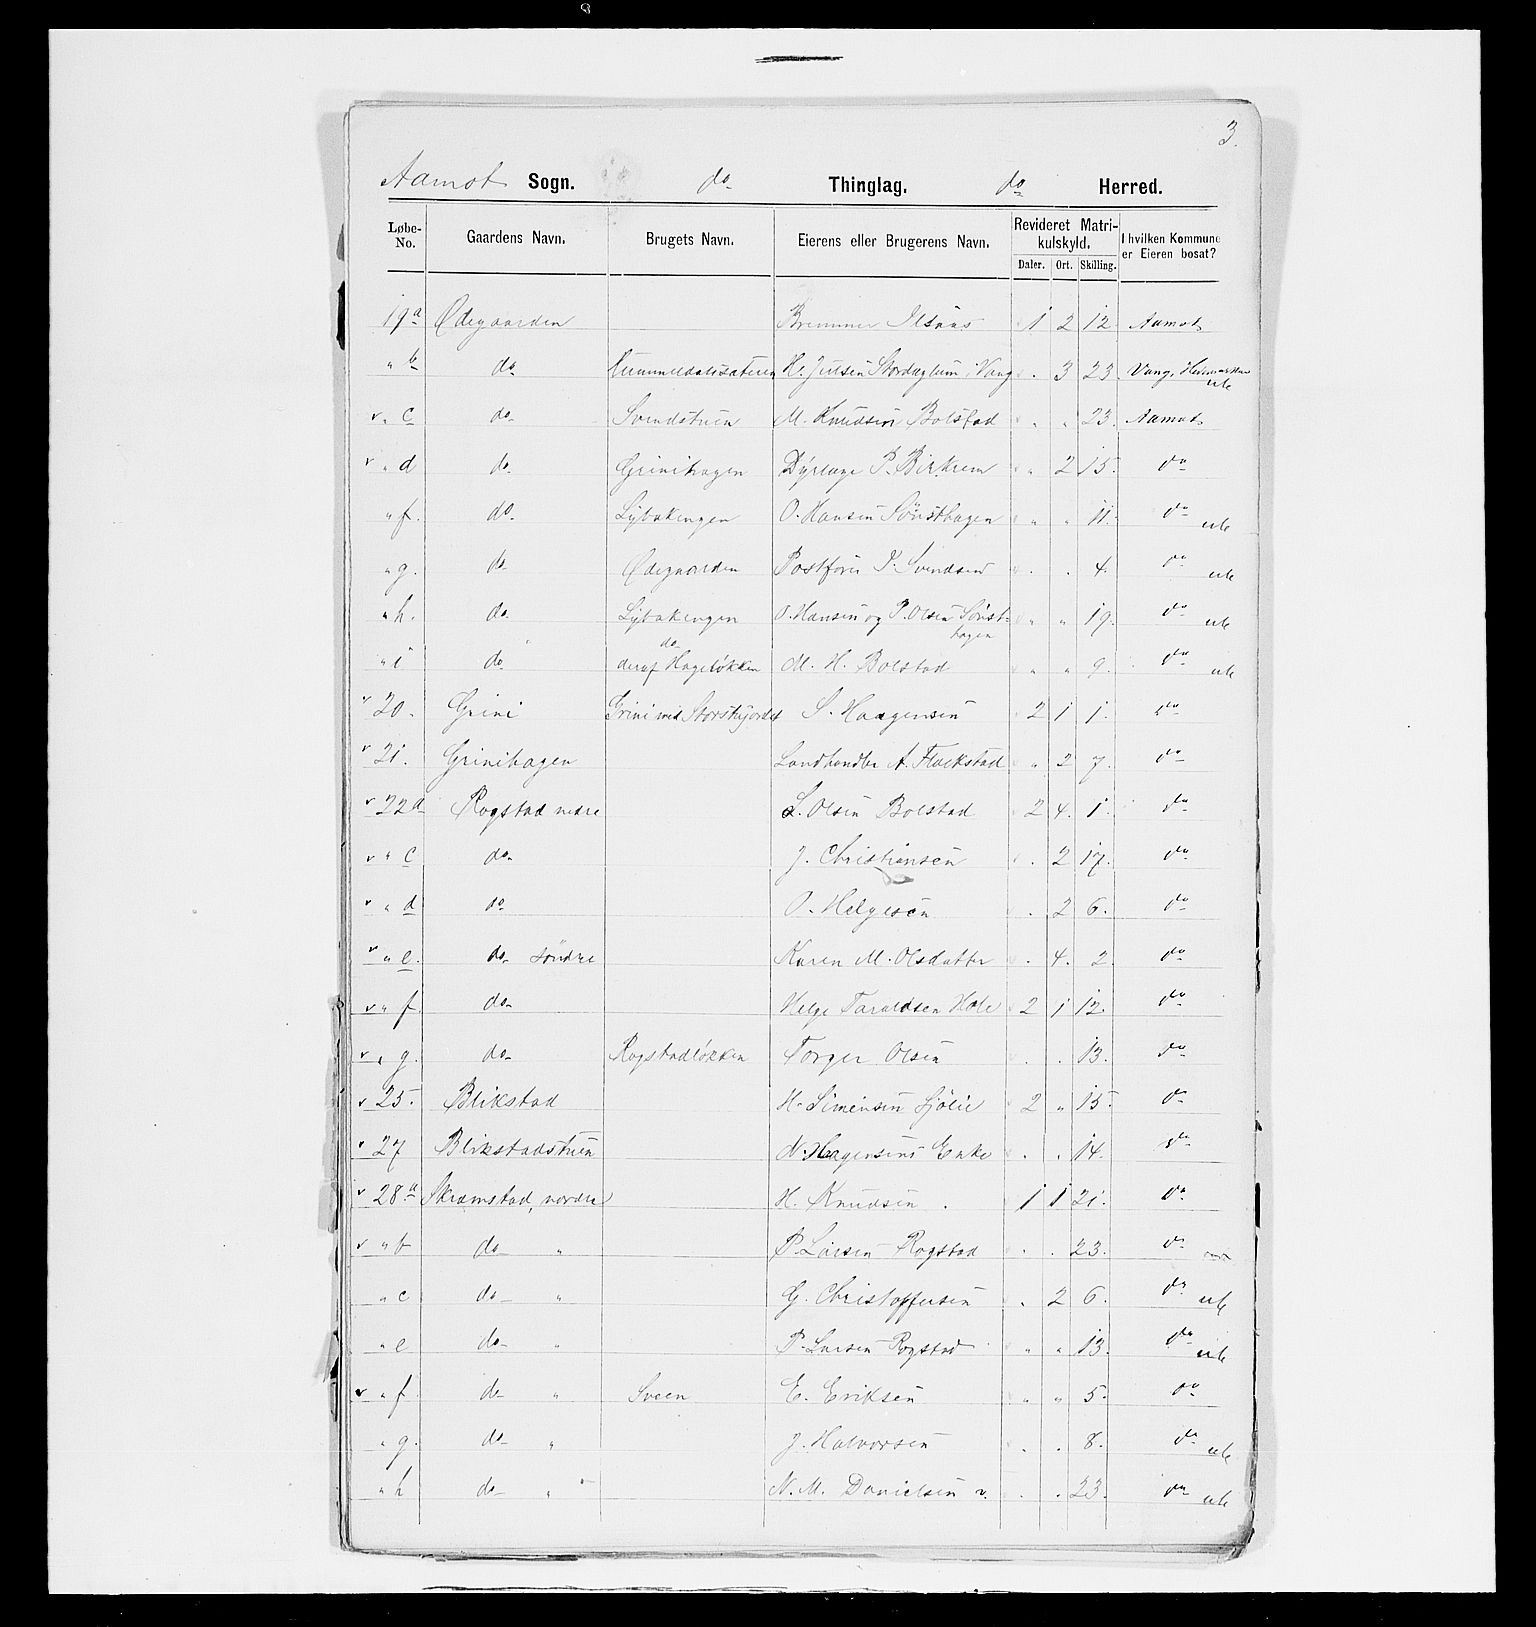 3.
Aamot Sogn. do Thinglag. do Herred.
Løbe-No. Gaardens Navn. Brugets Navn. Eierens eller Brugerens Navn. Revideret Matrikulskyld. Daler. Ort. Skilling. I hvilken Kommune er Eieren bosat?
19 a Ødegaarden Ilsaas 1 2 12 Aamot
" b do H. Julsen i Vang . 3 23 Vang, Hedemarken
v " c do Svendstuen M. Knudsen Bolstad " " 23 Aamot
v " d do Grinihagen Dyrlæge P. Birkrem " 2 15. do
" f. do Lybækengen O. Hansen Sønsthagen " " 11. do
" g. do Ødegaarden Postfører P. Svendsen . . 4. do
" h. do Lybækengen O. Hansen og P. Olsen Sønsthagen " " 19. do
" i do do deraf Hageløkken M. H. Bolstad " " 9. do
v 20. Grini Grini med Storskjordet S. Haagensen 2 1 1. do
v 21. Grinihagen Landhandler A. Flackstad " 2 7. do
v 22 a Rogstad nedre L. Olsen Bolstad 2 4. 1. do
v " c do J. Christiansen . 2 17. do
v " d do O. Helgesen . 2 6. do
v " e. do søndre Karen M. Olsdatter . 4. 2. do
v " f do Helge Taraldsen Hole 2 1 12. do
v " g. do Rogstadløkken Torger Olsen . . 13. do
v 25. Blikstad H. Simensen Sjølie 2 " 15. do
v 27 Blikstadstuen N. Hagensens Enke . . 14. do
v 28 a Skramstad, nordre H. Knudsen 1 1 21. do
v " b do " P. Larsen Rogstad . . 23. do
" c do " G. Christoffersen . 2 6. do
" e do " P. Larsen Rogstad " " 13. do
v " f do " Sveen E. Eriksen " " 5. do
" g. do " J. Halvorsen . . 8. do
" h do " N. M. Danielsen . . 23. do